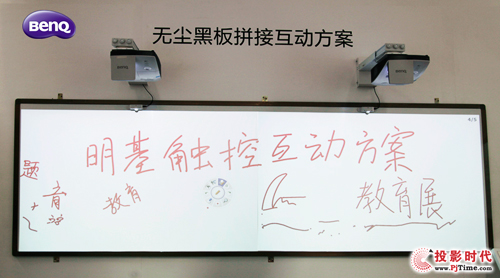 BenQ
无尘黑板拼接互动方案
明基触控互动方案
题
教育
教育展
投影时代
www.PjTime.com